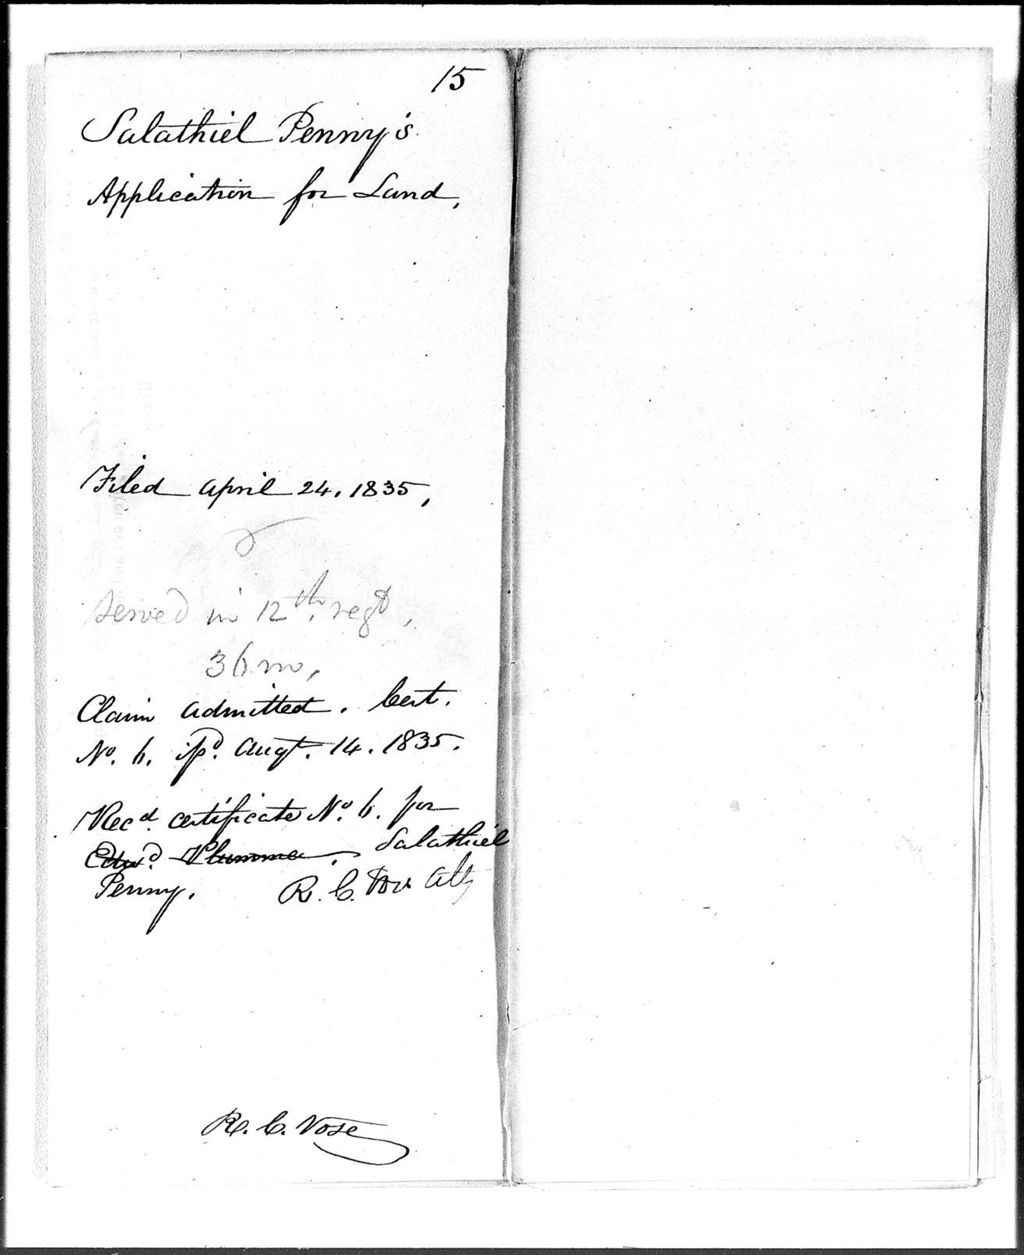 15
Salathiel Penny's
Application for Land,
Filed April 24, 1835,
Served in 12th. regt,
36 mo,
Claim admitted. Cert.
No. 6. isd. Augt. 14. 1835.
Recd. certificate No. 6. for
Edwd. Plummer, Salathiel
Penny. R. C. Vose Atty
R. C. Vose